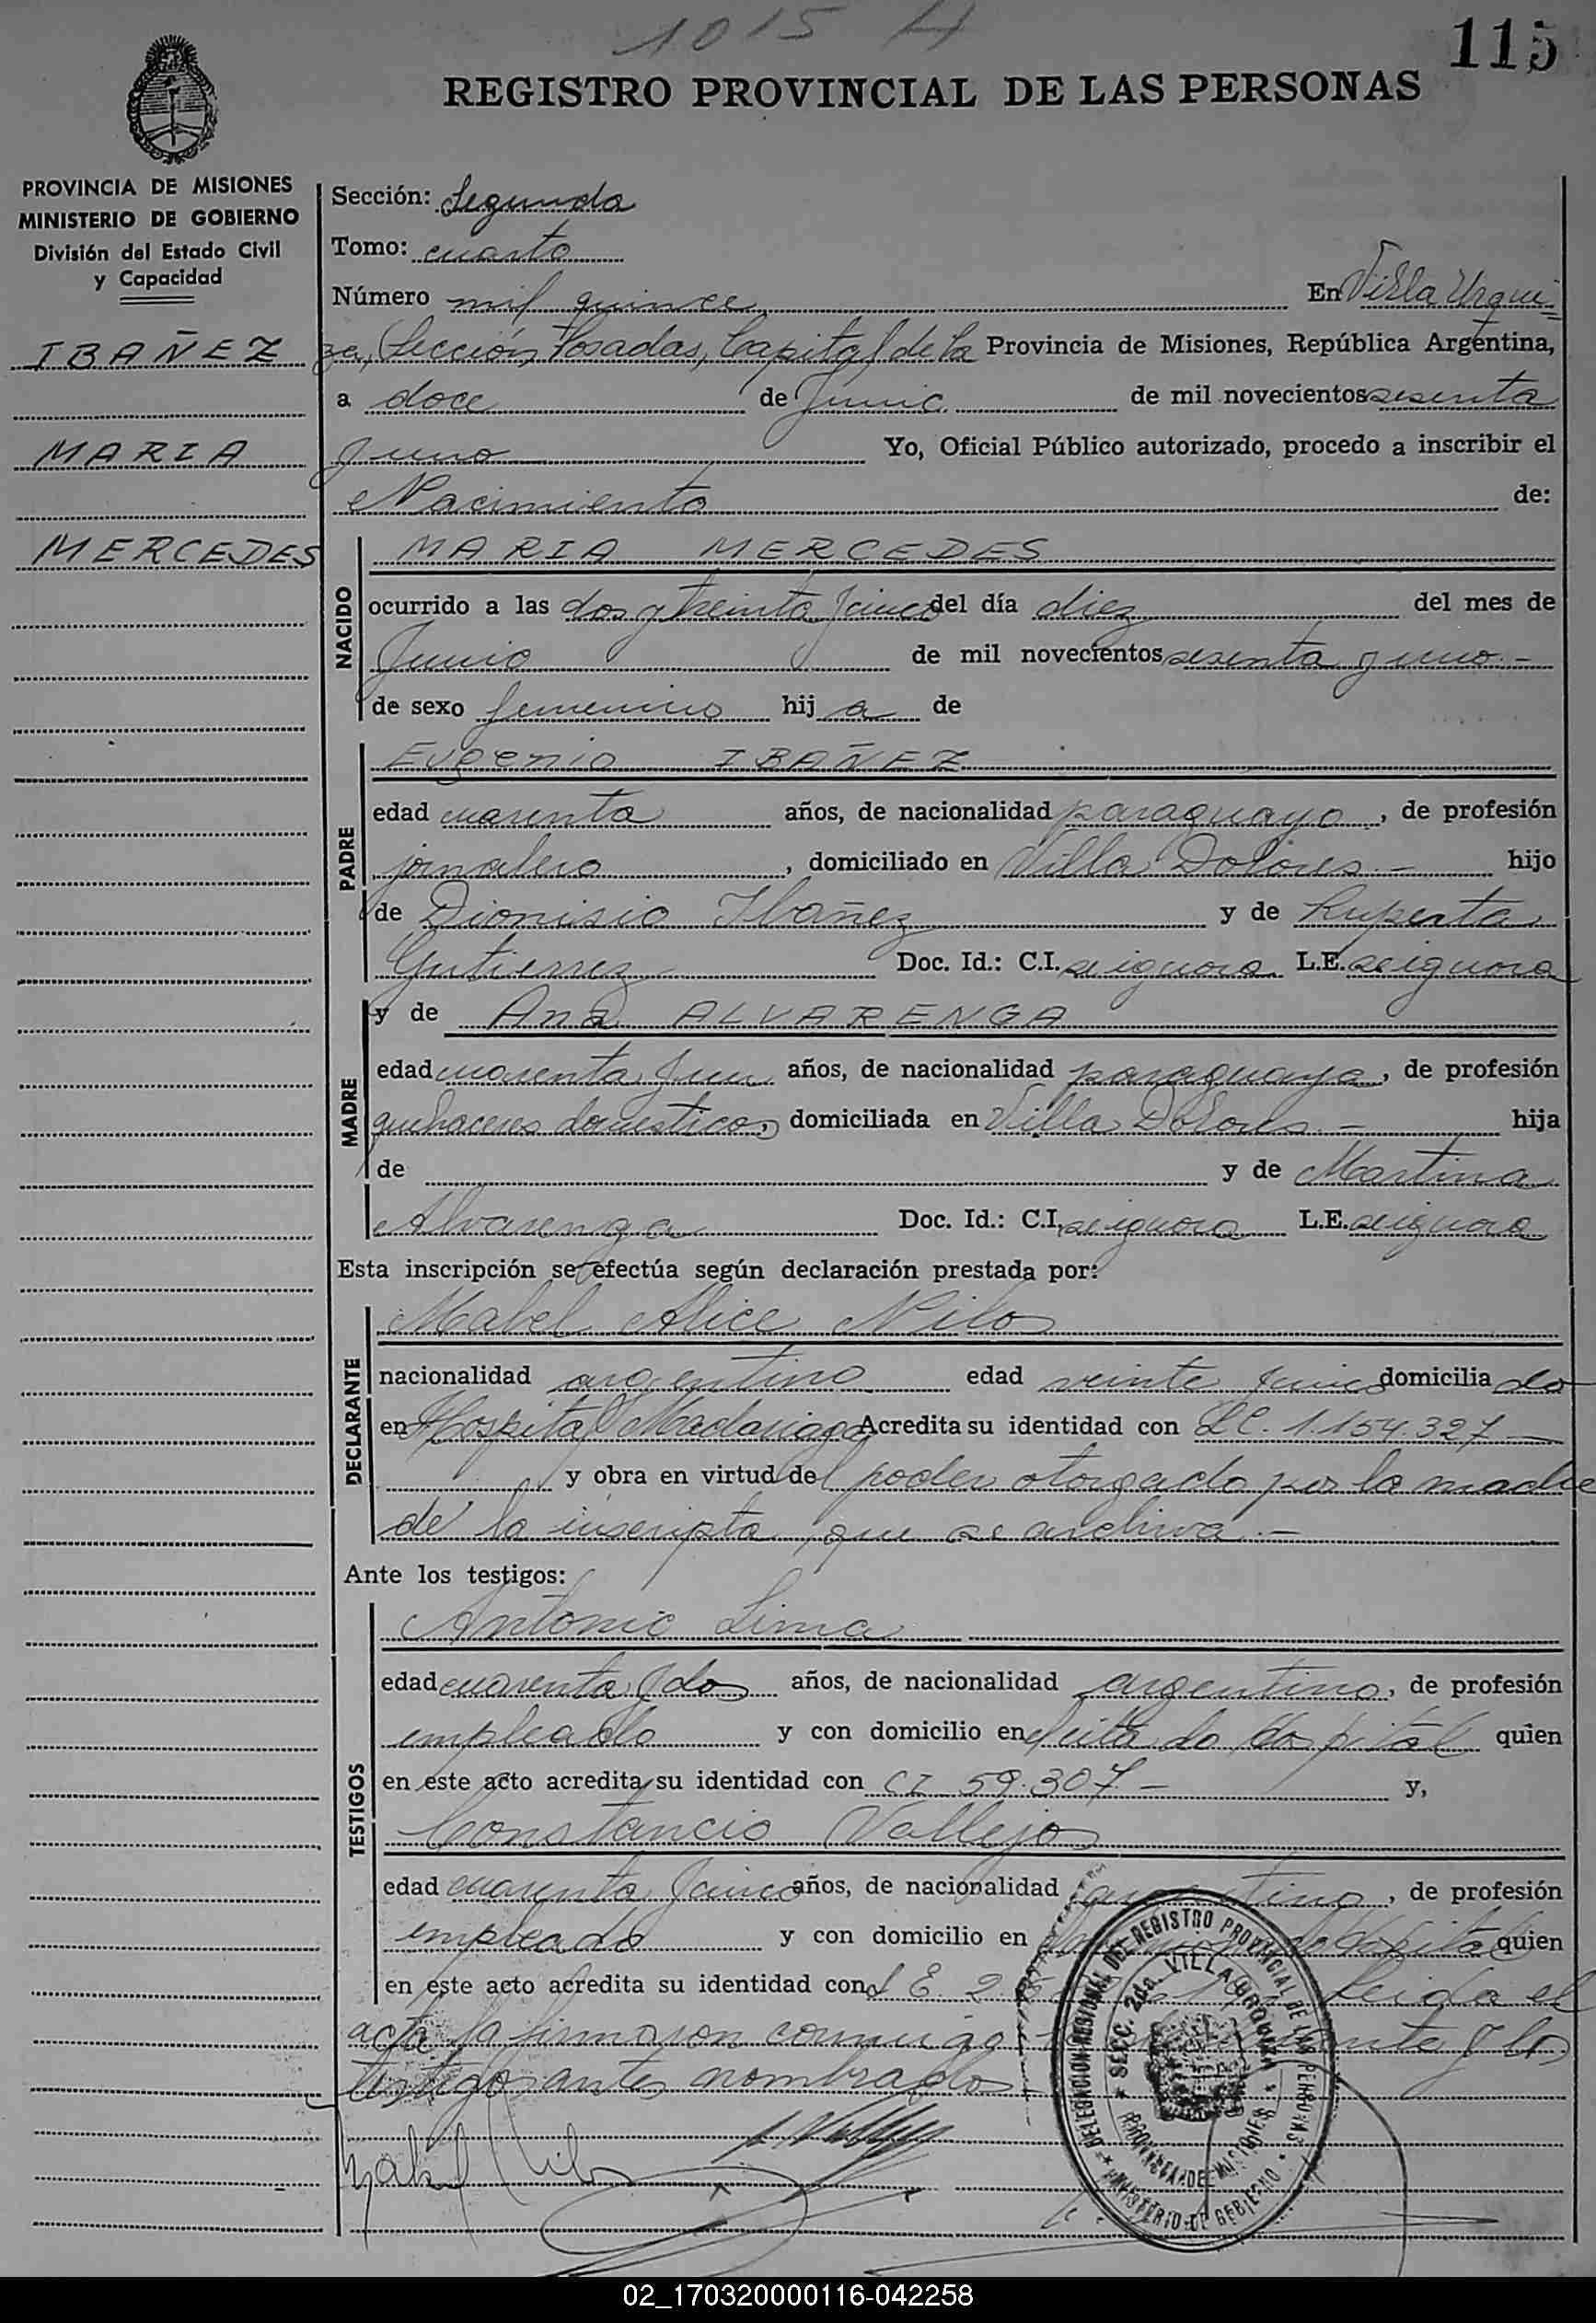 1015 H
115
REGISTRO PROVINCIAL DE LAS PERSONAS
PROVINCIA DE MISIONES
MINISTERIO DE GOBIERNO
División del Estado Civil
y Capacidad
IBAÑEZ
MARIA
MERCEDES
Sección: Segunda
Tomo: cuarto
Número mil quince En Villa Urqui=
za, Sección, Posadas, Capital de la Provincia de Misiones, República Argentina,
a doce de Junio de mil novecientos sesenta
y uno Yo, Oficial Público autorizado, procedo a inscribir el
Nacimiento de:
NACIDO
MARIA MERCEDES
ocurrido a las dos y treinta y cinco del día diez del mes de
Junio de mil novecientos sesenta y uno.-
de sexo femenino hij a de
PADRE
Eugenio IBAÑEZ
edad cuarenta años, de nacionalidad paraguayo, de profesión
jornalero, domiciliado en Villa Dolores.- hijo
de Dionisio Ibañez y de Ruperta
Gutierrez Doc. Id.: C.I. se ignora L.E. se ignora
MADRE
y de Ana ALVARENGA
edad cuarenta y un años, de nacionalidad paraguaya, de profesión
quehaceres domesticos, domiciliada en Villa Dolores.- hija
de y de Martina
Alvarenga Doc. Id.: C.I. se ignora L.E. se ignora
Esta inscripción se efectúa según declaración prestada por:
DECLARANTE
Mabel Alice
nacionalidad argentino edad veinte y cinco domicilia da
en Hospital Madariaga Acredita su identidad con LC. 1.154.327-
y obra en virtud del poder otorgado por la madre
de la inscripta que se archiva.-
Ante los testigos:
TESTIGOS
Antonio Lima
edad cuarenta y dos años, de nacionalidad argentino, de profesión
empleado y con domicilio en citado Hospital quien
en este acto acredita su identidad con CI 59.307- y,
Constancio Vallejos
edad cuarenta y cinco años, de nacionalidad argentino, de profesión
empleado y con domicilio en Hospital quien
en este acto acredita su identidad con L E. 2. Leida el
acta la firmaron conmigo y los
testigos antes nombrados
DELEGACION REGIONAL DEL REGISTRO PROVINCIAL DE LAS PERSONAS
SECC. 2da. VILLA URQUIZA
PROVINCIA DE MISIONES
MINISTERIO DE GOBIERNO
02_170320000116-042258